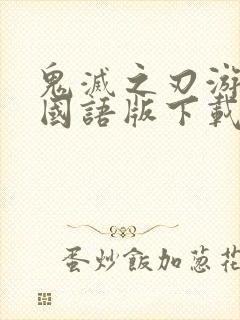 鬼滅之刃游
國語版下載
蛋炒飯加蔥花